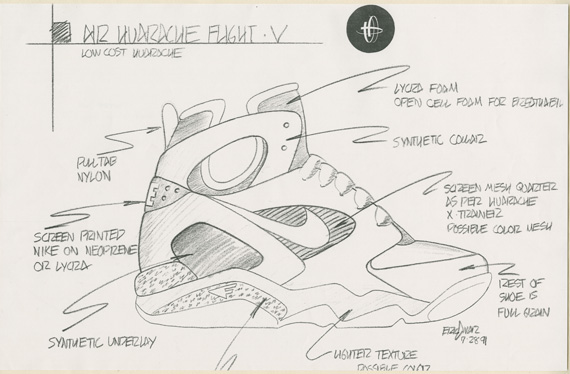 AIR HUARACHE FLIGHT · V
LOW COST HUARACHE
LYCRA FOAM
OPEN CELL FOAM FOR BREATHABIL
SYNTHETIC COLLAR
PULL TAB
NYLON
SCREEN MESH QUARTER
AS PER HUARACHE
X TRAINER
POSSIBLE COLOR MESH
SCREEN PRINTED
NIKE ON NEOPRENE
OR LYCRA
REST OF
SHOE IS
FULL GRAIN
SYNTHETIC UNDERLAY
LIGHTER TEXTURE
POSSIBLE COLOR
9·28·91